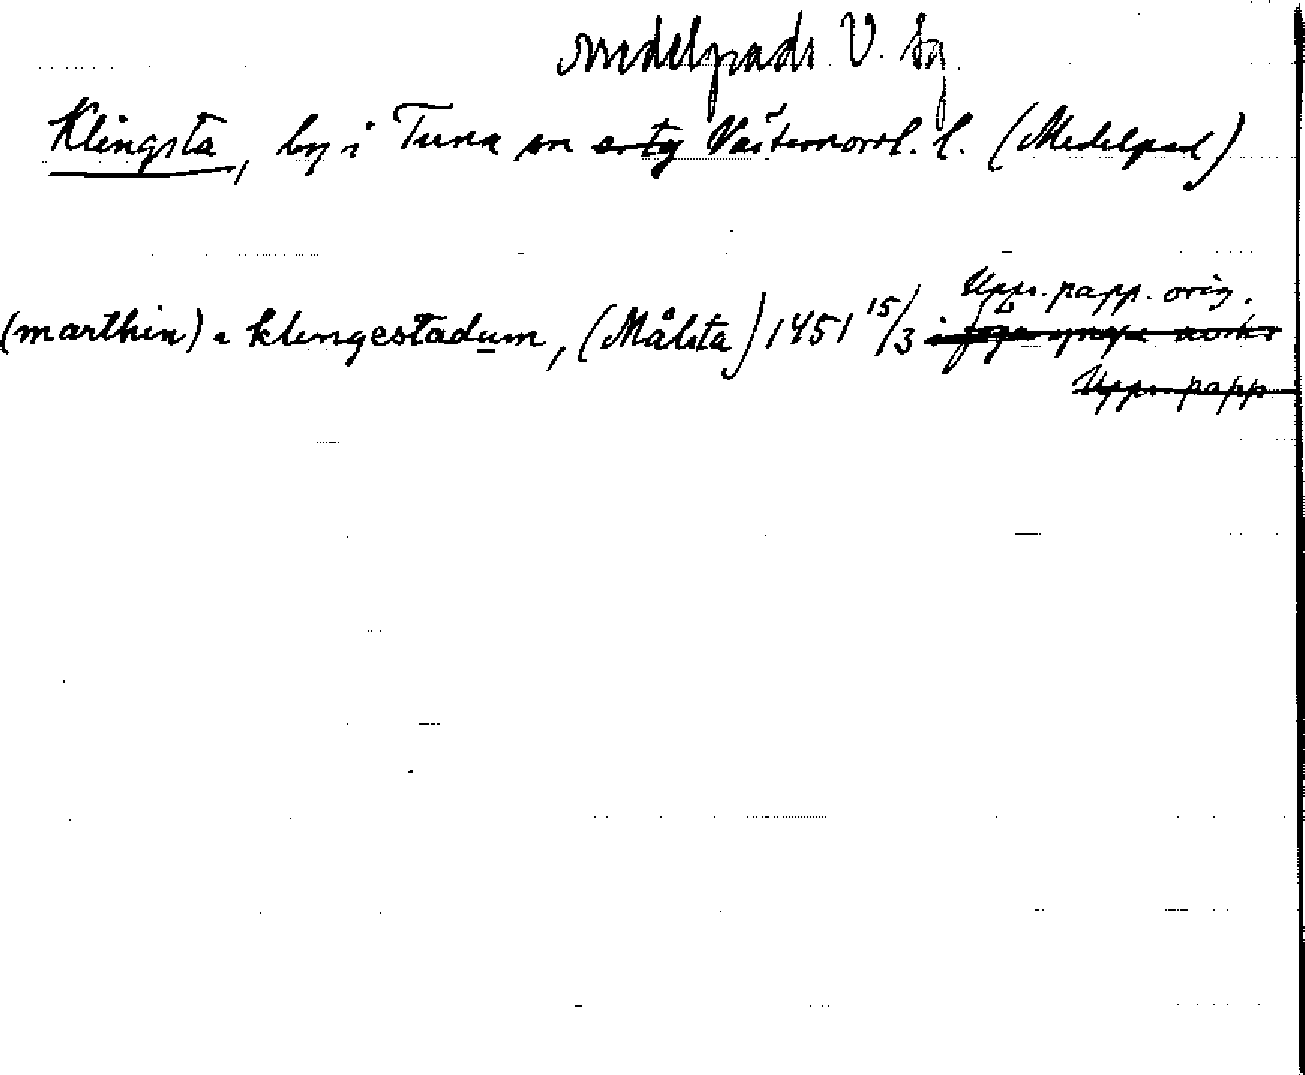 Medelpads V. tg
Klingsta, by i Tuna sn Västernorrl. l. (Medelpad)
Upps. papp. orig.
(marthin) a klingestadum, (Målsta) 1451 15/3
Upps. papp